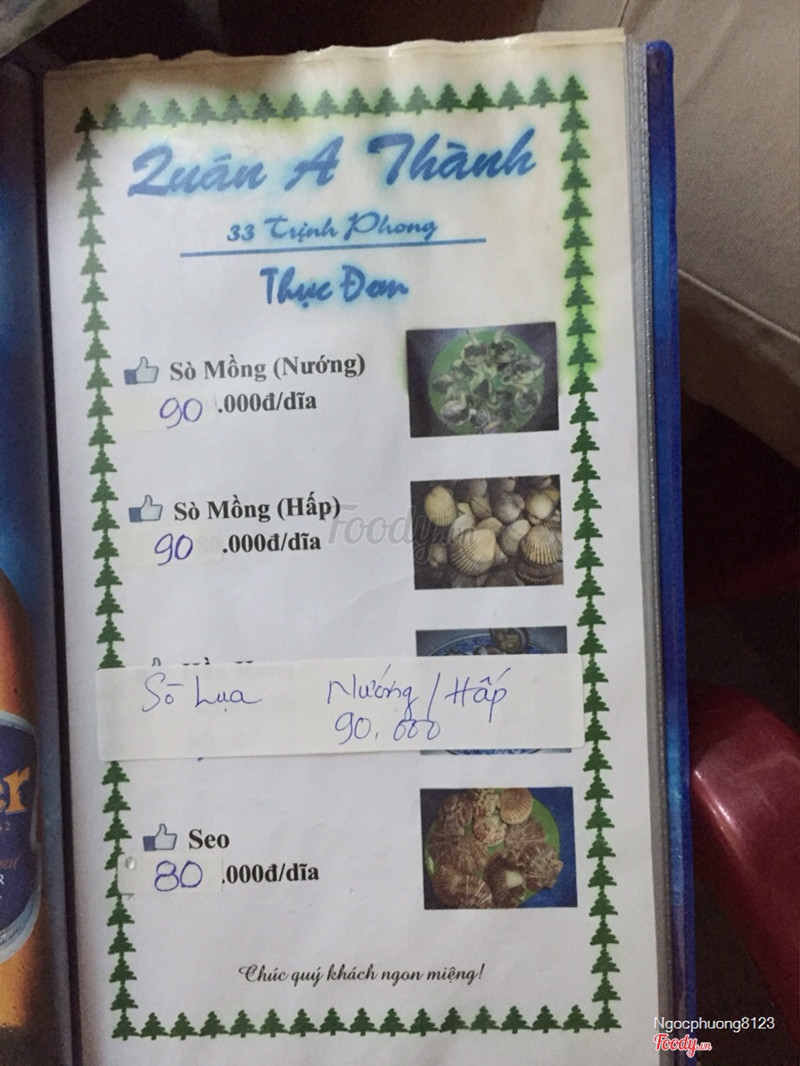 Quán A Thành
33 Trịnh Phong
Thực Đơn
Sò Mồng (Nướng)
90 .000đ/dĩa
Sò Mồng (Hấp)
90 .000đ/dĩa
Foody.vn
Sò Lụa Nướng/Hấp
90.000
Seo
80 .000đ/dĩa
Chúc quý khách ngon miệng!
er
Ngocphuong8123
Foody.vn